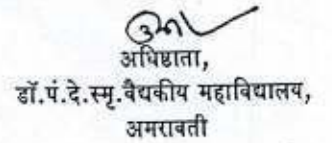 अधिष्ठाता,
डॉ.पं.दे.स्मृ.वैद्यकीय महाविद्यालय,
अमरावती